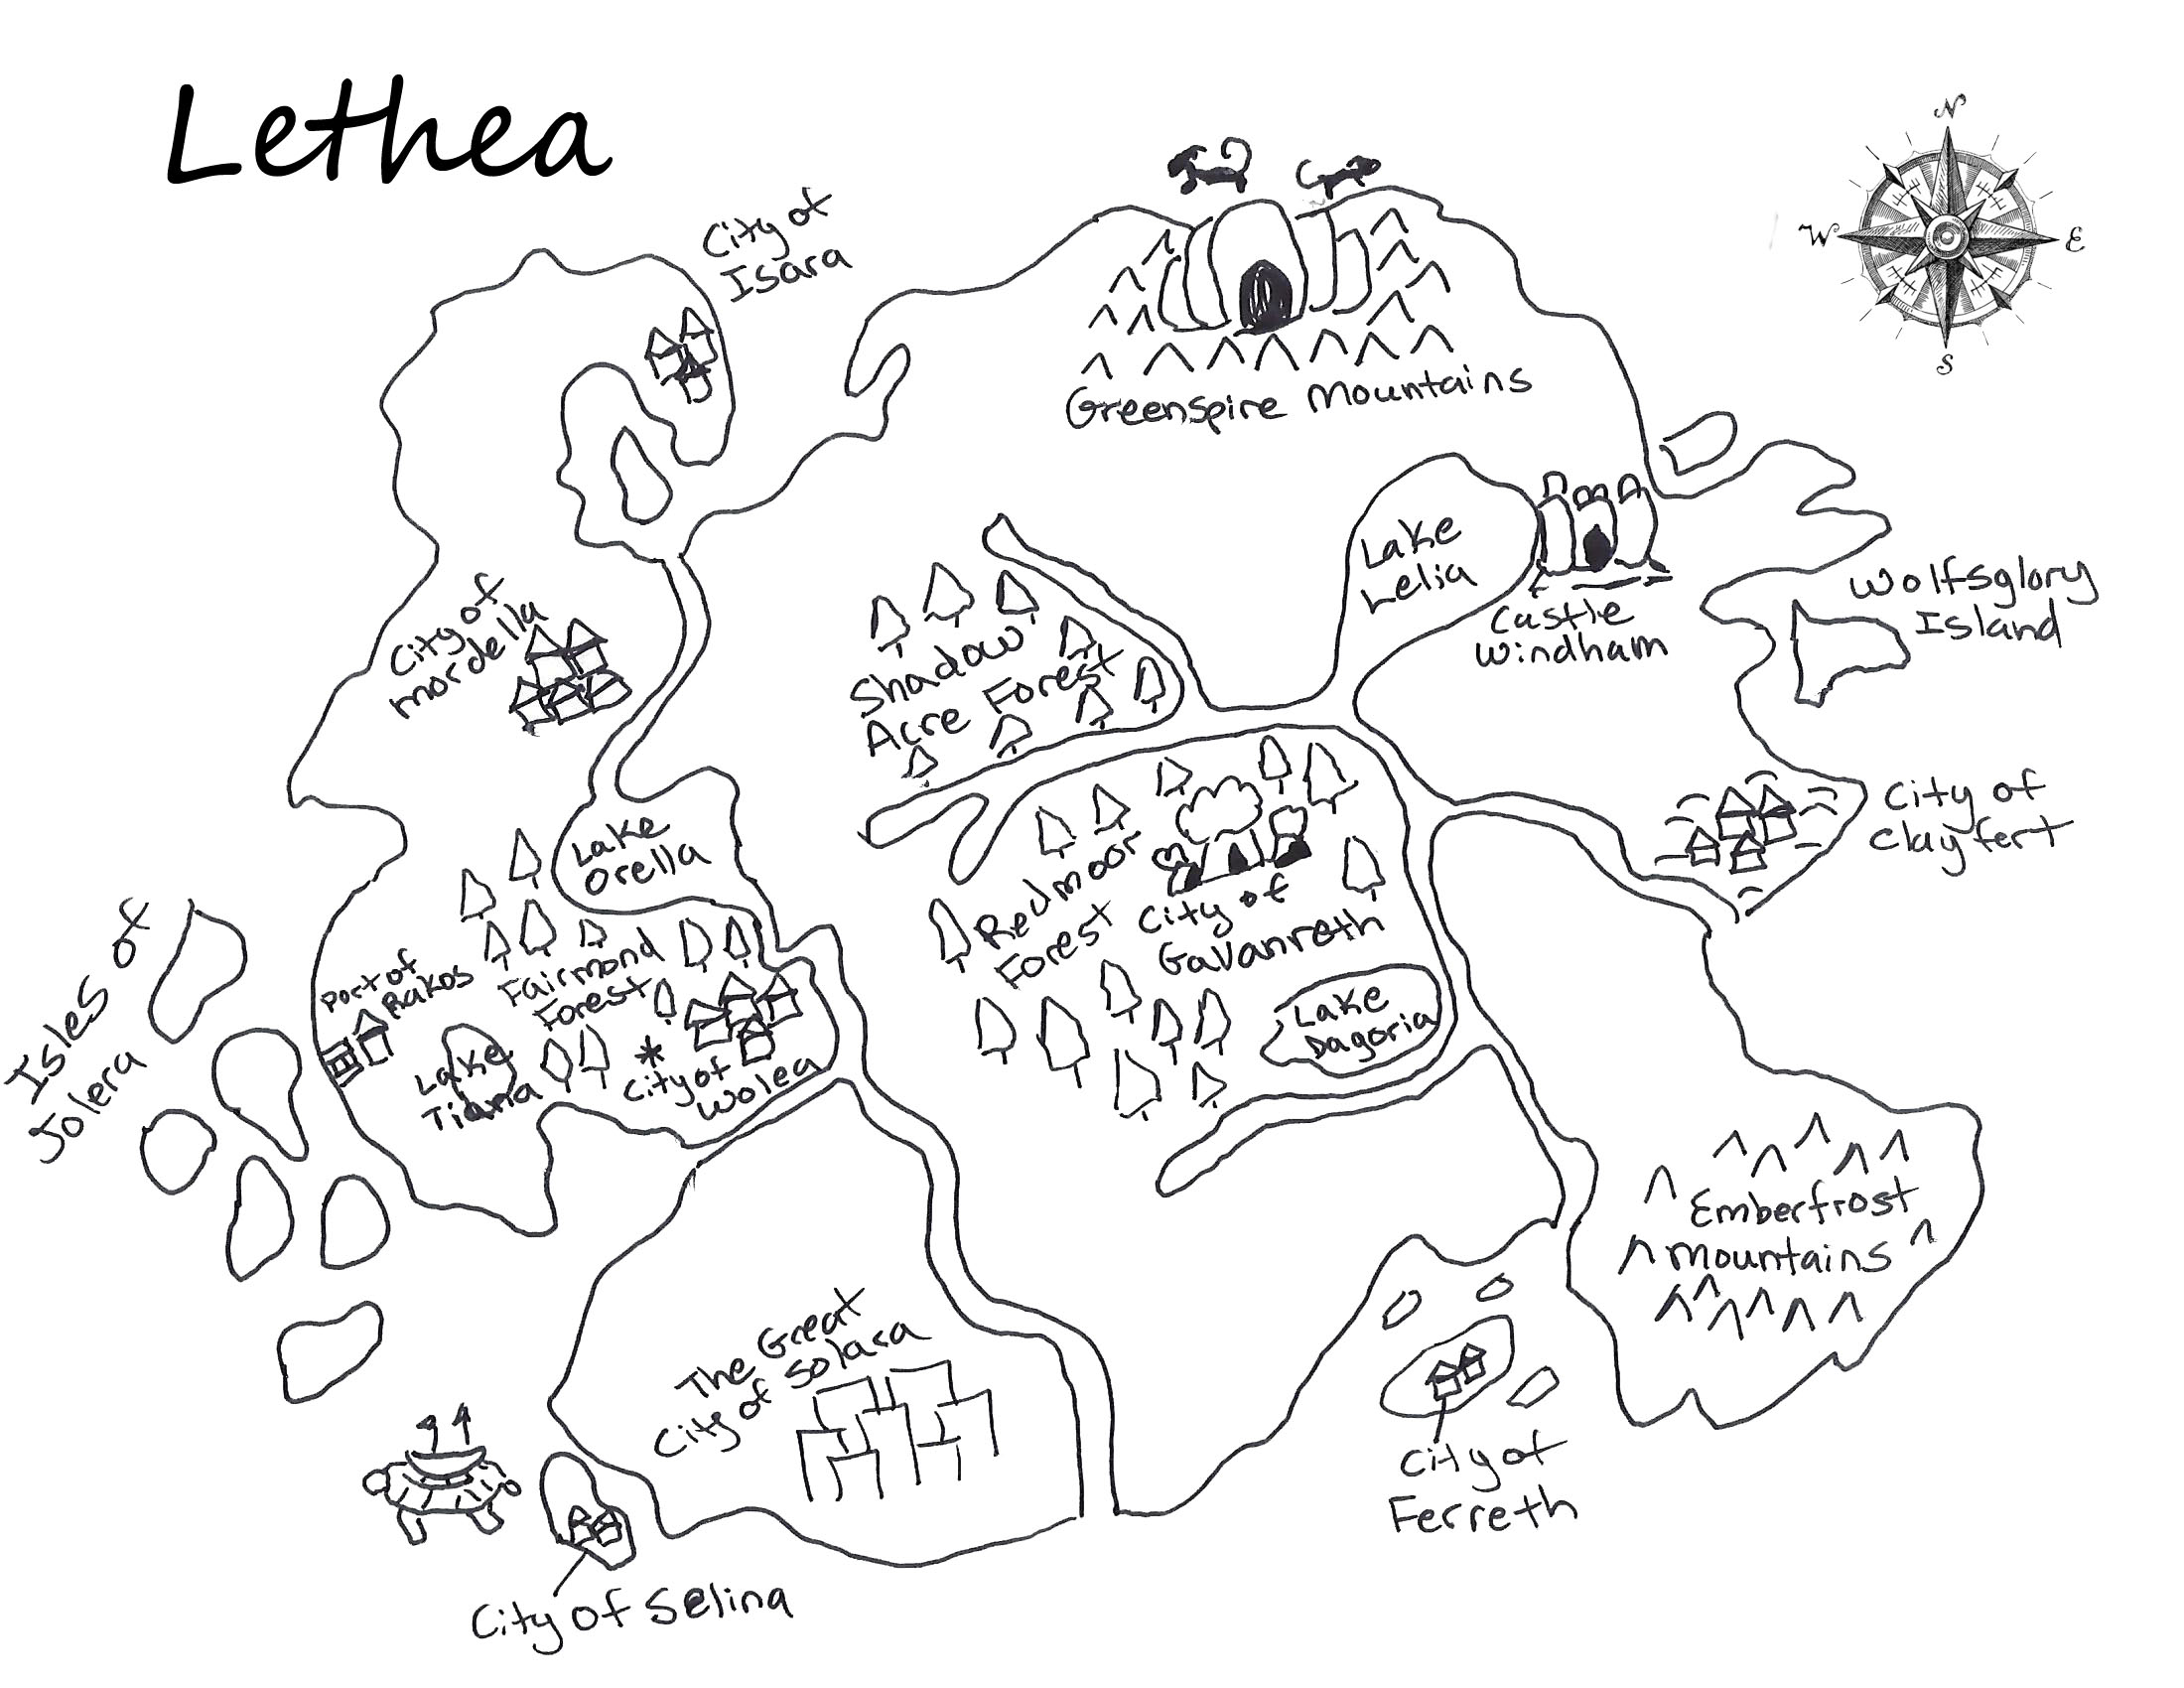 Lethea
N
W
E
S
City of
Isara
Greenspire Mountains
Lake
Lelia
Castle
Windham
Wolfsglory
Island
City of
mordella
Shadow
Acre Forest
City of
Clayfert
Lake
Orella
Redmoor
Forest
City of
Gavanreth
Lake
Dagoria
Fairmond
Forest
Port of
Rakos
Lake
Tiana
City of
Wolea
Isles of
Solera
Emberfrost
Mountains
The Great
City of Solara
City of
Ferreth
City of Selina